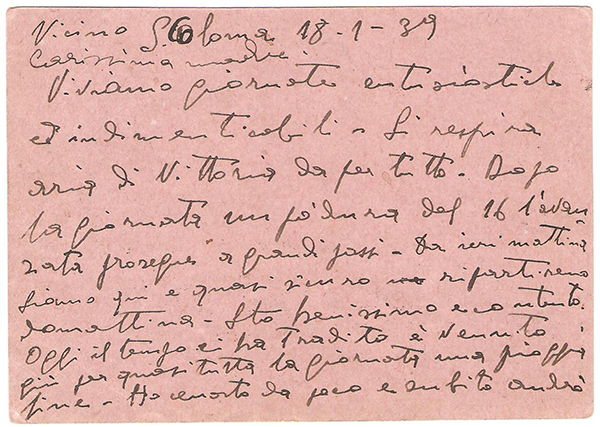 Vicino S. Coloma 18-1-39
Carissima madre.
Viviamo giornate entusiastiche
ed indimenticabili - Si respira
aria di Vittoria da per tutto - Dopo
la giornata un po' dura del 16 l'avan
zata prosegue a grandi passi - Da ieri mattina
siamo qui e quasi sicuro ripartiremo
domattina - Sto benissimo e contento.
Oggi il tempo ci ha tradito è venuto
giù per quasi tutta la giornata una pioggi
fine - Ho cenato da poco e subito andrò